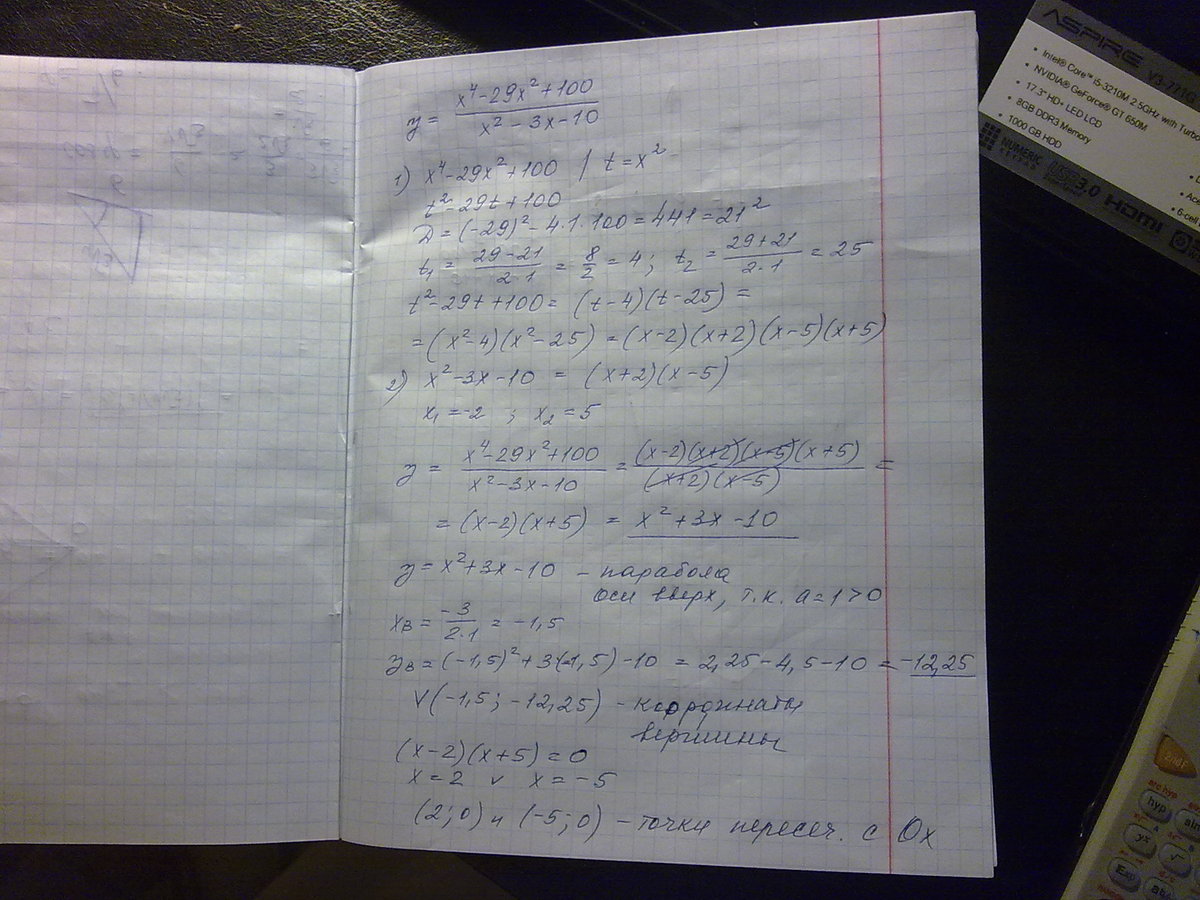 y = x⁴-29x²+100 / x²-3x-10
1) x⁴-29x²+100 / t=x²
t²-29t+100
D=(-29)²-4·1·100=441=21²
t₁ = 29-21 / 2·1 = 8/2 = 4; t₂ = 29+21 / 2·1 = 25
t²-29t+100= (t-4)(t-25) =
=(x²-4)(x²-25) =(x-2)(x+2)(x-5)(x+5)
2) x²-3x-10 = (x+2)(x-5)
x₁=-2 ; x₂=5
y = x⁴-29x²+100 / x²-3x-10 = (x-2)(x+2)(x-5)(x+5) / (x+2)(x-5) =
= (x-2)(x+5) = x²+3x-10
y=x²+3x-10 - парабола
оси вверх, т.к. a=1>0
xв= -3 / 2·1 = -1,5
yв=(-1,5)²+3(-1,5)-10 = 2,25-4,5-10=-12,25
V(-1,5; -12,25) - координаты
вершины
(x-2)(x+5)=0
x=2 v x=-5
(2;0) и (-5;0) - точки пересеч. с Ox
ASPIRE V3-771G
• Intel® Core™ i5-3210M 2.5GHz with Turbo
• NVIDIA® GeForce® GT 650M
• 17.3" HD+ LED LCD
• 8GB DDR3 Memory
• 1000 GB HDD
NUMERIC
3.0 HDMI
• Ace
• 6-cell
2ndF
arc hyp
hyp
yˣ
√
Exp